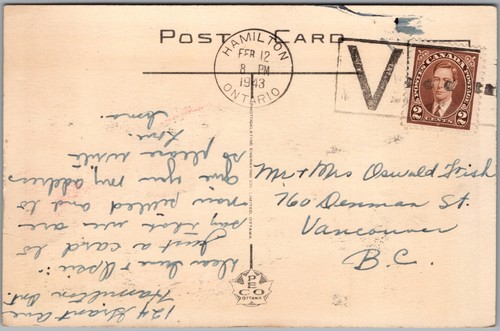 POST CARD
HAMILTON
FEB 12
8 PM
1943
ONTARIO
V
POSTES CANADA POSTAGE
2 CENTS 2
Mr & Mrs Oswald Irish
760 Denman St.
Vancouver
B.C.
124 Grant Ave
Hamilton Ont.
Dear &
Just a card to
say that we are
now settled and to
give you my address
so please write
Love.
PECO
OTTAWA